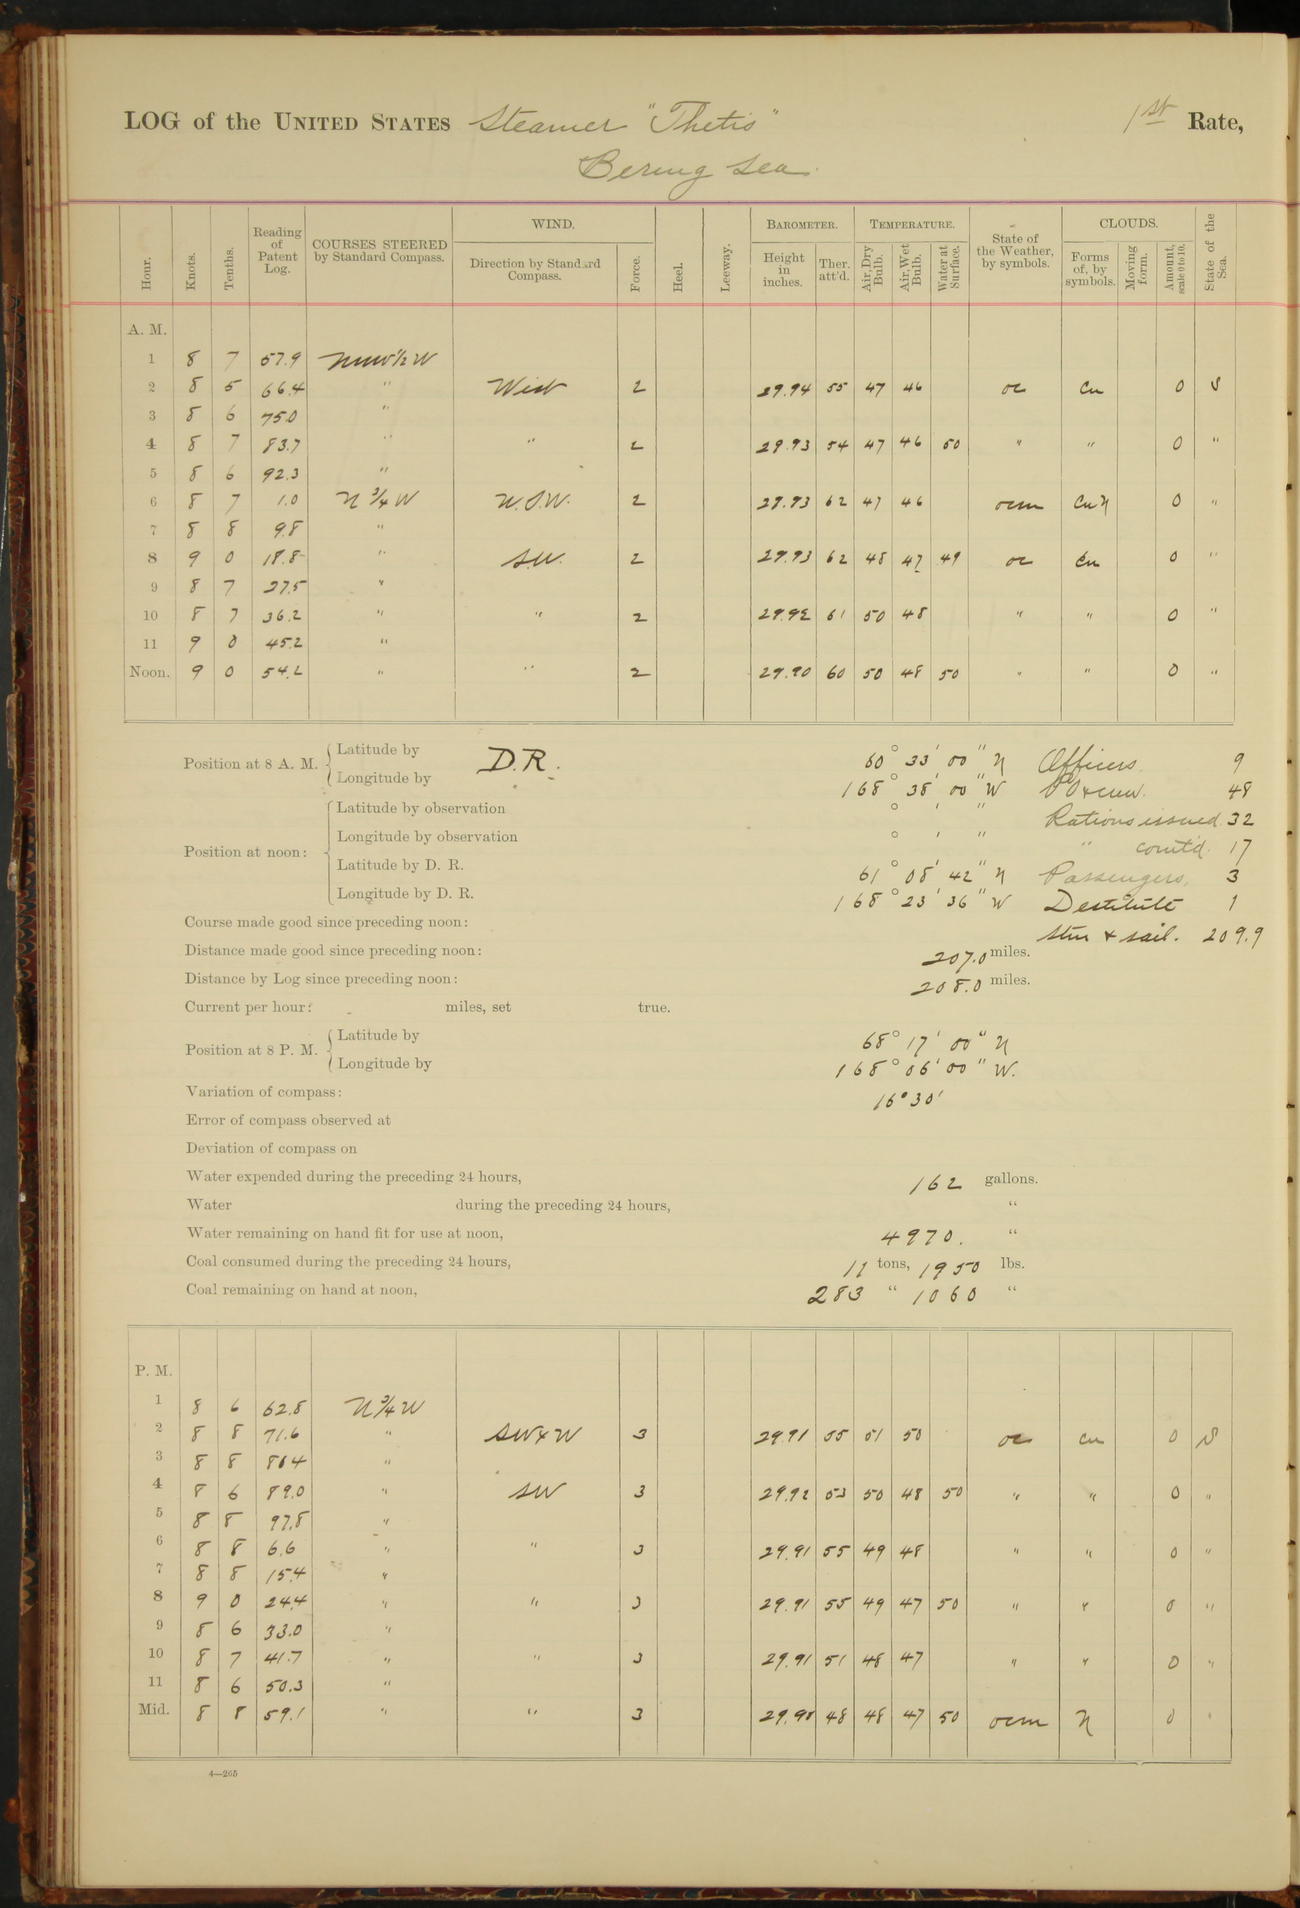 LOG of the UNITED STATES Steamer "Thetis" 1st Rate,
Bering Sea.
Hour. Knots. Tenths. Reading of Patent Log. COURSES STEERED by Standard Compass. WIND. Direction by Standard Compass. Force. Heel. Leeway. BAROMETER. Height in inches. Ther. att'd. TEMPERATURE. Air, Dry Bulb. Air, Wet Bulb. Water at Surface. State of the Weather, by symbols. CLOUDS. Forms of, by symbols. Moving form. Amount, scale 0 to 10. State of the Sea.
A. M.
1 8 7 57.9 NNW½W
2 8 5 66.4 " West 2 29.94 55 47 46 oc cu 0 S
3 8 6 75.0 "
4 8 7 83.7 " " 2 29.93 54 47 46 50 " " 0 "
5 8 6 92.3 "
6 8 7 1.0 N ¾ W W.S.W. 2 29.93 62 47 46 ocm Cu N 0 "
7 8 8 9.8 "
8 9 0 18.8 " S.W. 2 29.93 62 48 47 49 oc Cu 0 "
9 8 7 27.5 "
10 8 7 36.2 " " 2 29.92 61 50 48 " " 0 "
11 9 0 45.2 "
Noon. 9 0 54.2 " " 2 29.90 60 50 48 50 " " 0 "
Position at 8 A. M. Latitude by D.R. 60° 33' 00" N Officers. 9
Longitude by 168° 38' 00" W P O & crew. 48
Position at noon: Latitude by observation ° ' " Rations issued 32
Longitude by observation ° ' " " comt'd. 17
Latitude by D. R. 61° 08' 42" N Passengers, 3
Longitude by D. R. 168° 23' 36" W Destitute 1
Course made good since preceding noon: Stm & sail. 209.9
Distance made good since preceding noon: 207.0 miles.
Distance by Log since preceding noon: 208.0 miles.
Current per hour: miles, set true.
Position at 8 P. M. Latitude by 68° 17' 00" N
Longitude by 168° 06' 00" W.
Variation of compass: 16° 30'
Error of compass observed at
Deviation of compass on
Water expended during the preceding 24 hours, 162 gallons.
Water during the preceding 24 hours, "
Water remaining on hand fit for use at noon, 4970. "
Coal consumed during the preceding 24 hours, 11 tons, 1950 lbs.
Coal remaining on hand at noon, 283 " 1060 "
P. M.
1 8 6 62.8 N ¾ W
2 8 8 71.6 " SW x W 3 29.91 55 51 50 oc cu 0 S
3 8 8 80.4 "
4 8 6 89.0 " SW 3 29.92 53 50 48 50 " " 0 "
5 8 8 97.8 "
6 8 8 6.6 " " 3 29.91 55 49 48 " " 0 "
7 8 8 15.4 "
8 9 0 24.4 " " 3 29.91 55 49 47 50 " " 0 "
9 8 6 33.0 "
10 8 7 41.7 " " 3 29.91 51 48 47 " " 0 "
11 8 6 50.3 "
Mid. 8 8 59.1 " " 3 29.90 48 48 47 50 ocm N 0 "
4—265